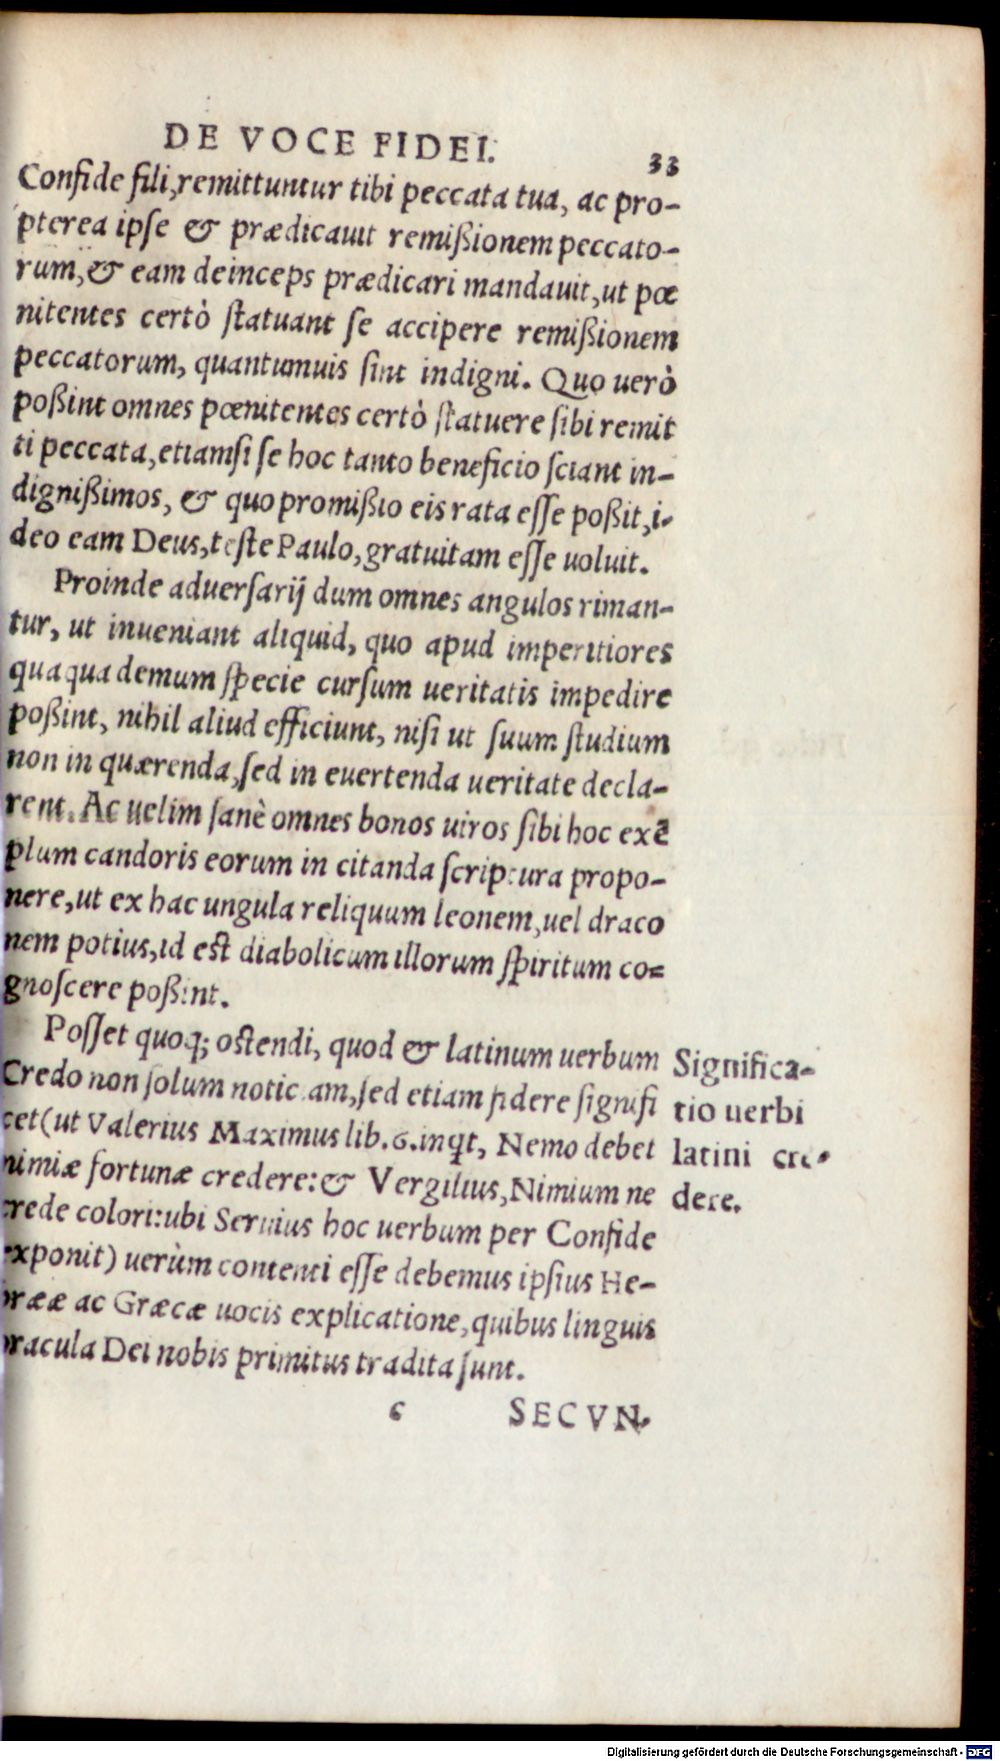 DE VOCE FIDEI.
33
Confide fili, remittuntur tibi peccata tua, ac pro-
pterea ipse & prædicauit remißionem peccato-
rum, & eam deinceps prædicari mandauit, ut pœ
nitentes certò statuant se accipere remißionem
peccatorum, quantumuis sint indigni. Quo uerò
poßint omnes pœnitentes certò statuere sibi remit
ti peccata, etiamsi se hoc tanto beneficio sciant in-
dignißimos, & quo promißio eis rata esse poßit, i-
deo eam Deus, teste Paulo, gratuitam esse uoluit.
Proinde aduersarij dum omnes angulos riman-
tur, ut inueniant aliquid, quo apud imperitiores
qua qua demum specie cursum ueritatis impedire
poßint, nihil aliud efficiunt, nisi ut suum studium
non in quærenda, sed in euertenda ueritate decla-
rent. Ac uelim sanè omnes bonos uiros sibi hoc exẽ
plum candoris eorum in citanda scriptura propo-
nere, ut ex hac ungula reliquum leonem, uel draco
nem potius, id est diabolicum illorum spiritum co-
gnoscere poßint.
Posset quoq; ostendi, quod & latinum uerbum
Credo non solum noticiam, sed etiam fidere signifi
cet (ut Valerius Maximus lib. 6. inqt, Nemo debet
nimiæ fortunæ credere: & Vergilius, Nimium ne
crede colori: ubi Seruius hoc uerbum per Confide
exponit) uerùm contenti esse debemus ipsius He-
bræææ ac Græcæ uocis explicatione, quibus linguis
oracula Dei nobis primitus tradita sunt.
Significa-
tio uerbi
latini cre-
dere.
c
SECVN-
Digitalisierung gefördert durch die Deutsche Forschungsgemeinschaft - DFG